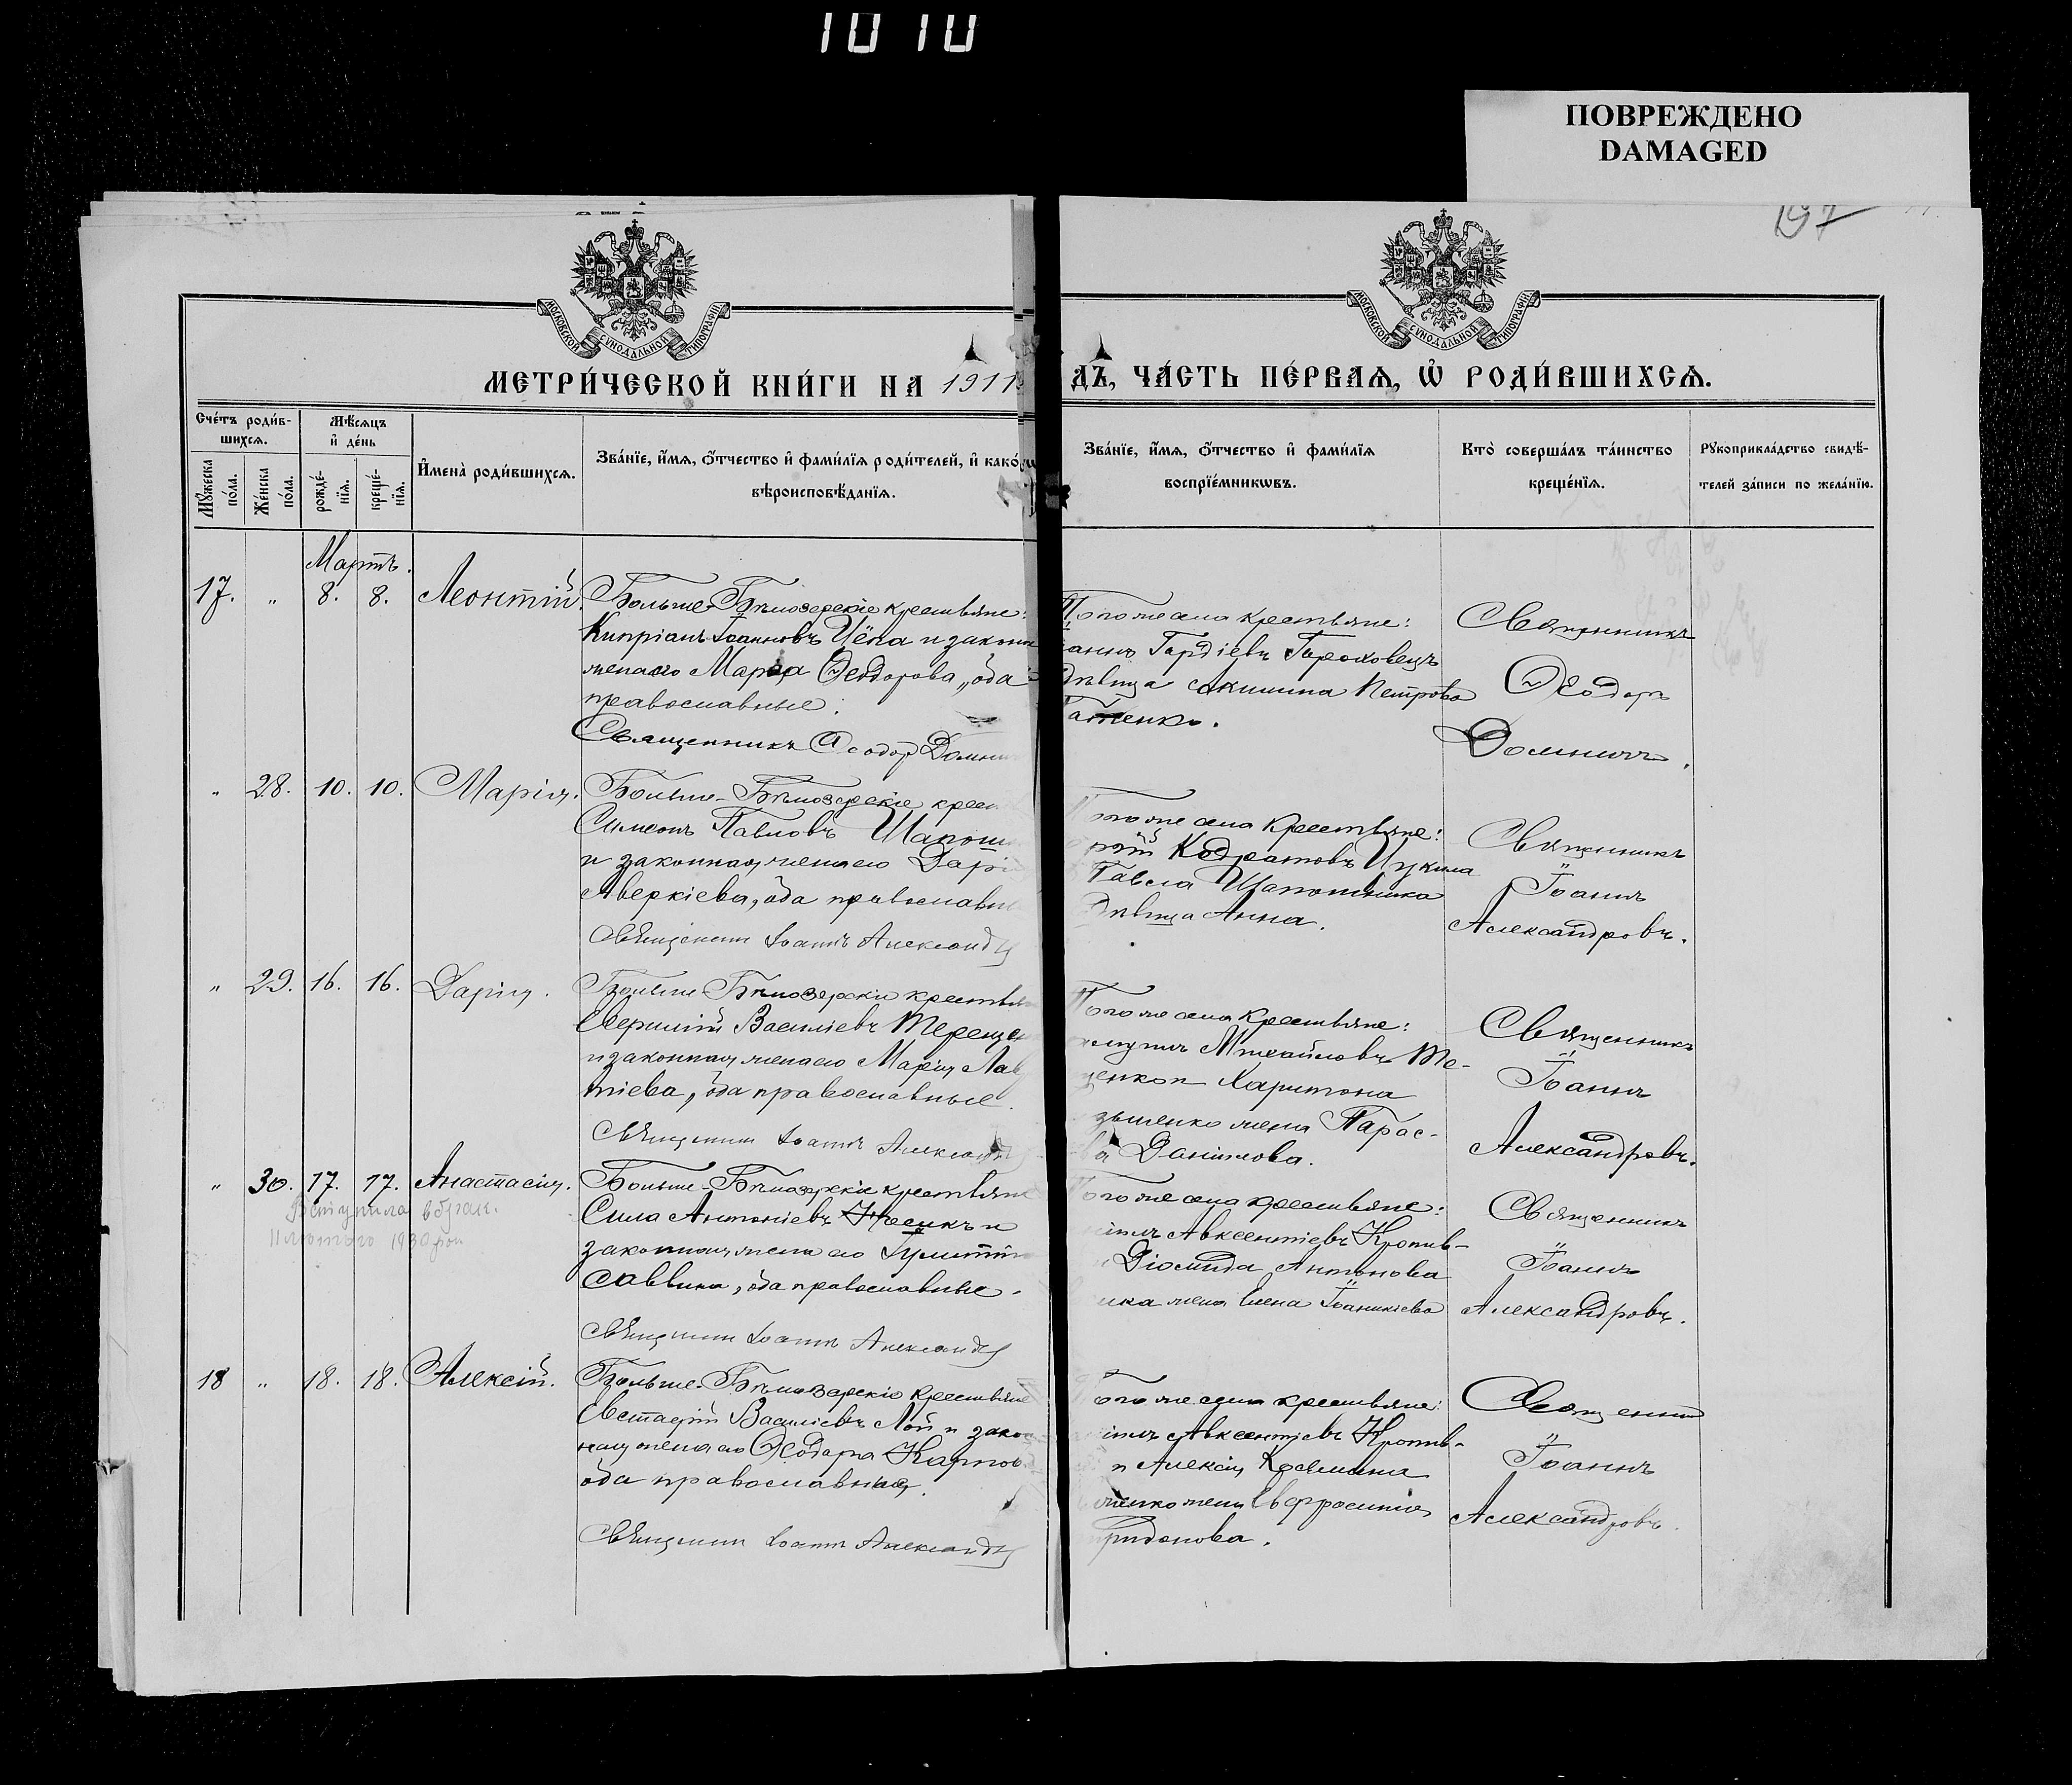 1010
ПОВРЕЖДЕНО
DAMAGED
197
МОСКОВСКОЙ СѴНОДАЛЬНОЙ ТИПОГРАФІИ
МОСКОВСКОЙ СѴНОДАЛЬНОЙ ТИПОГРАФІИ
МЕТРИ́ЧЕСКОЙ КНИ́ГИ НА 1911
ДЪ, ЧА́СТЬ ПЕ́РВАЯ, Ѡ РОДИ́ВШИХСЯ.
Сче́тъ роди́в-
шихся.
Мѣ́сяцъ
и҆ де́нь
Мꙋ́жеска по́ла.
Же́нска по́ла.
рожде́-
нїя.
креще́-
нїя.
И҆мена̀ роди́вшихся.
Зва́нїе, и҆́мя, о҆́тчество и҆ фами́лїя роди́телей, и҆ како́
вѣроисповѣ́данїя.
Зва́нїе, и҆́мя, о҆́тчество и҆ фами́лїя
воспрїе́мникѡвъ.
Кто̀ соверша́лъ та́инство
креще́нїя.
Рꙋкоприкла́дство свидѣ́-
телей за́писи по жела́нїю.
Мартъ.
17. " 8. 8. Леонтій.
Больше-Бѣлозерскіе крестьяне:
Кипріанъ Іоанновъ Цёпа и законн
жена его Марѳа Ѳеодорова, оба
православные.
Священникъ Ѳеодор Долини
Того же села крестьяне:
Гордіевъ Гороховецъ
дѣвица Акилина Петрова
Священникъ
Ѳеодоръ
" 28. 10. 10. Марія.
Больше-Бѣлозерскіе крест
Симеонъ Павловъ Шапош
и законная жена его Дарі
Аверкіева, оба православн
Священникъ Іоаннъ Александр
того же села крестьяне:
Кодратовъ
Павла Шапошника
дѣвица Анна.
Священникъ
Іоаннъ
Александровъ.
" 29. 16. 16. Дарія.
Больше-Бѣлозерскіе крестья
Василіевъ Тереще
и законная жена его Марія Лав
тіева, оба православные.
Священникъ Іоаннъ Александр
Того же села крестьяне:
Михайловъ Те-
щенко и Харитона
жена Парас-
ва Данілова.
Священникъ
Іоаннъ
Александровъ.
" 30. 17. 17. Анастасія.
Вступила в брак.
11 лютого 1930 року
Больше-Бѣлозерскіе крестьяне
Сила Антоніевъ Носикъ и
законная жена его Іулитта
Саввина, оба православные.
Священникъ Іоаннъ Александр
Того же села крестьяне:
Авксентіевъ Кропив-
и Діомида Антонова
жена Елена Іоанникіева
Священникъ
Іоаннъ
Александровъ.
18 " 18. 18. Алексій.
Больше-Бѣлозерскіе крестьяне
Евстафій Василіевъ Лой и закон
ная жена его Ѳеодора Карпов
оба православные.
Священникъ Іоаннъ Александр
того же села крестьяне:
Авксентіевъ Кропив-
и Алексія Космина
жена Евфросинія
Священникъ
Іоаннъ
Александровъ.